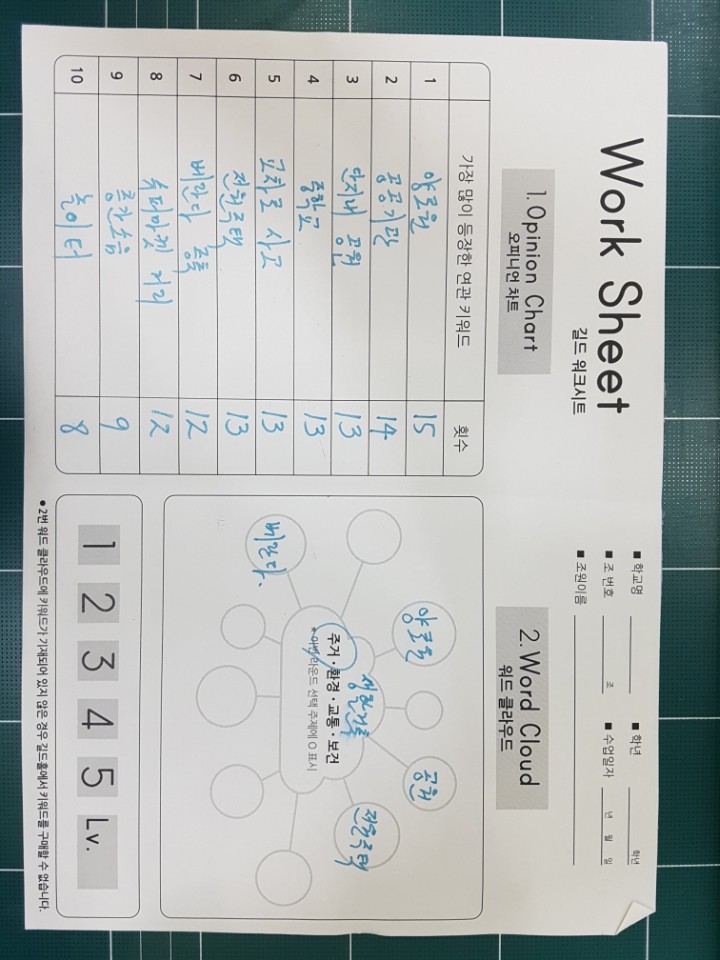 Work Sheet
길드 워크시트
■ 학교명 ■ 학년 학년
■ 조 번호 조 ■ 수업일자 년 월 일
■ 조원이름
1. Opinion Chart
오피니언 차트
가장 많이 등장한 연관 키워드 횟수
1 양로원 15
2 공공기관 14
3 단지내 공원 13
4 중학교 13
5 교차로 사고 13
6 전원주택 13
7 베란다 증축 12
8 슈퍼마켓 거리 12
9 층간소음 9
10 놀이터 8
2. Word Cloud
워드 클라우드
양로원
공원
전원주택
베란다.
생활건축
주거 · 환경 · 교통 · 보건
* 이번 라운드 선택 주제에 O 표시
1 2 3 4 5 Lv.
● 2번 워드 클라우드에 키워드가 기재되어 있지 않은 경우 길드홀에서 키워드를 구매할 수 없습니다.